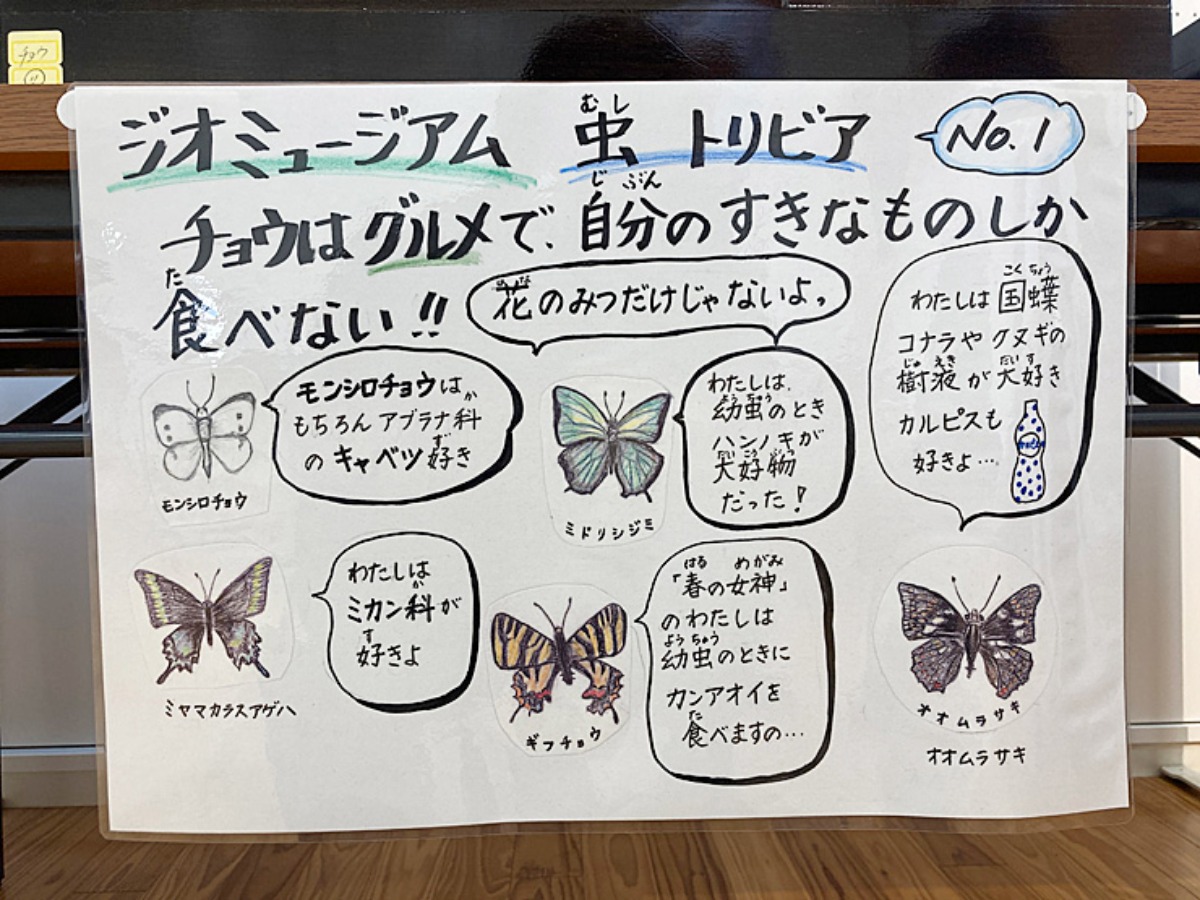 チョウ
ジオミュージアム 虫 トリビア No.1
むし
チョウはグルメで、自分のすきなものしか
じ ぶん
食べない!!
た
花のみつだけじゃないよっ
はな
モンシロチョウは
もちろん アブラナ科
か
の キャベツ好き
ず
モンシロチョウ
わたしは、
幼虫のとき
ようちゅう
ハンノキが
大好物
だいこうぶつ
だった!
ミドリシジミ
わたしは 国蝶
こくちょう
コナラや クヌギの
樹液が大好き
じゅ えき だいす
カルピスも
好きよ…
わたしは
ミカン科が
か
好きよ
す
ミヤマカラスアゲハ
「春の女神」
はる めがみ
のわたしは
幼虫のときに
ようちゅう
カンアオイを
食べますの…
た
ギフチョウ
オオムラサキ
オオムラサキ